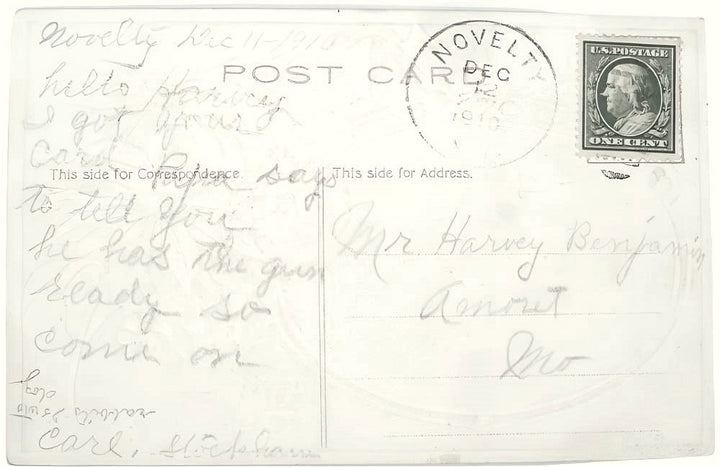 Novelty Dec 11-1910
POST CARD
NOVELTY
DEC
12
1910
U.S. POSTAGE
ONE CENT
hello Harvey
I got your
card Papa says
This side for Correspondence.
This side for Address.
to tell you
he has the gun
ready so
come on
Mr Harvey Benjamin
Amoret
Mo
rabbits
dog
Carl.